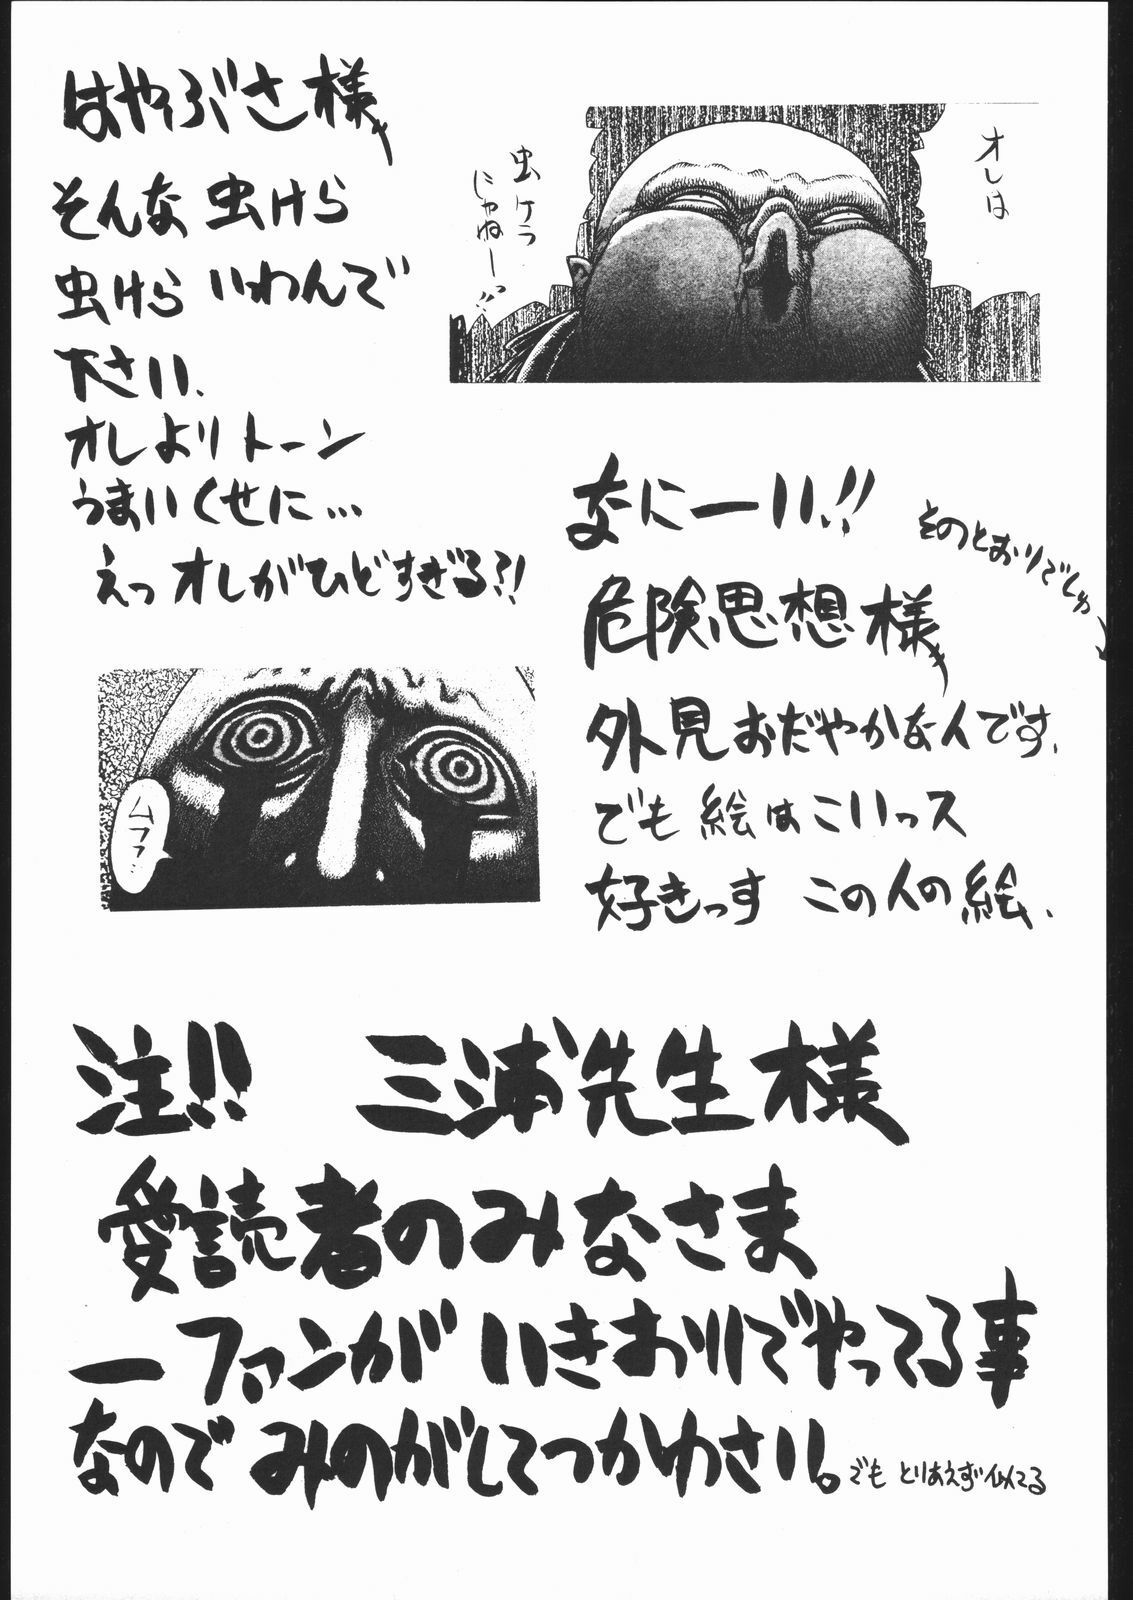 はやぶさ様
そんな虫けら
虫けらいわんで
下さい、
オレよりトーン
うまいくせに…
えっオレがひどすぎる?!
オレは
虫ケラ
じゃねー!!
なにーい!!
そのとおりでしゅ
危険思想様
外見おだやかな人です、
でも絵はこいっス
好きっす この人の絵、
ムフフ…
注!! 三浦先生様
愛読者のみなさま
一ファンがいきおいでやってる事
なのでみのがしてつかわさい。
でもとりあえず似てる